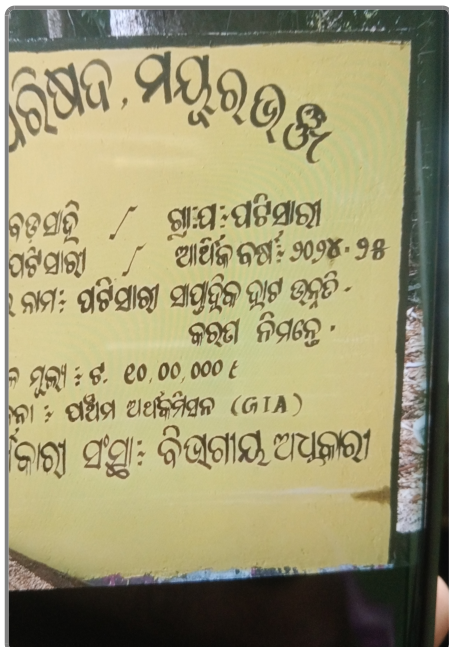 ପରିଷଦ, ମୟୂରଭଞ୍ଜ
ବଡ଼ସାହି / ଗ୍ରା:ପ: ପଟିସାରୀ
ପଟିସାରୀ / ଆର୍ଥିକ ବର୍ଷ: ୨୦୨୪-୨୫
ନାମ: ପଟିସାରୀ ସାପ୍ତାହିକ ହାଟ ଉନ୍ନତି
କରଣ ନିମନ୍ତେ
ମୂଲ୍ୟ: ଟ. ୧୦,୦୦,୦୦୦/
ପଞ୍ଚମ ଅର୍ଥକମିସନ (GIA)
କାରୀ ସଂସ୍ଥା: ବିଭାଗୀୟ ଅଧିକାରୀ